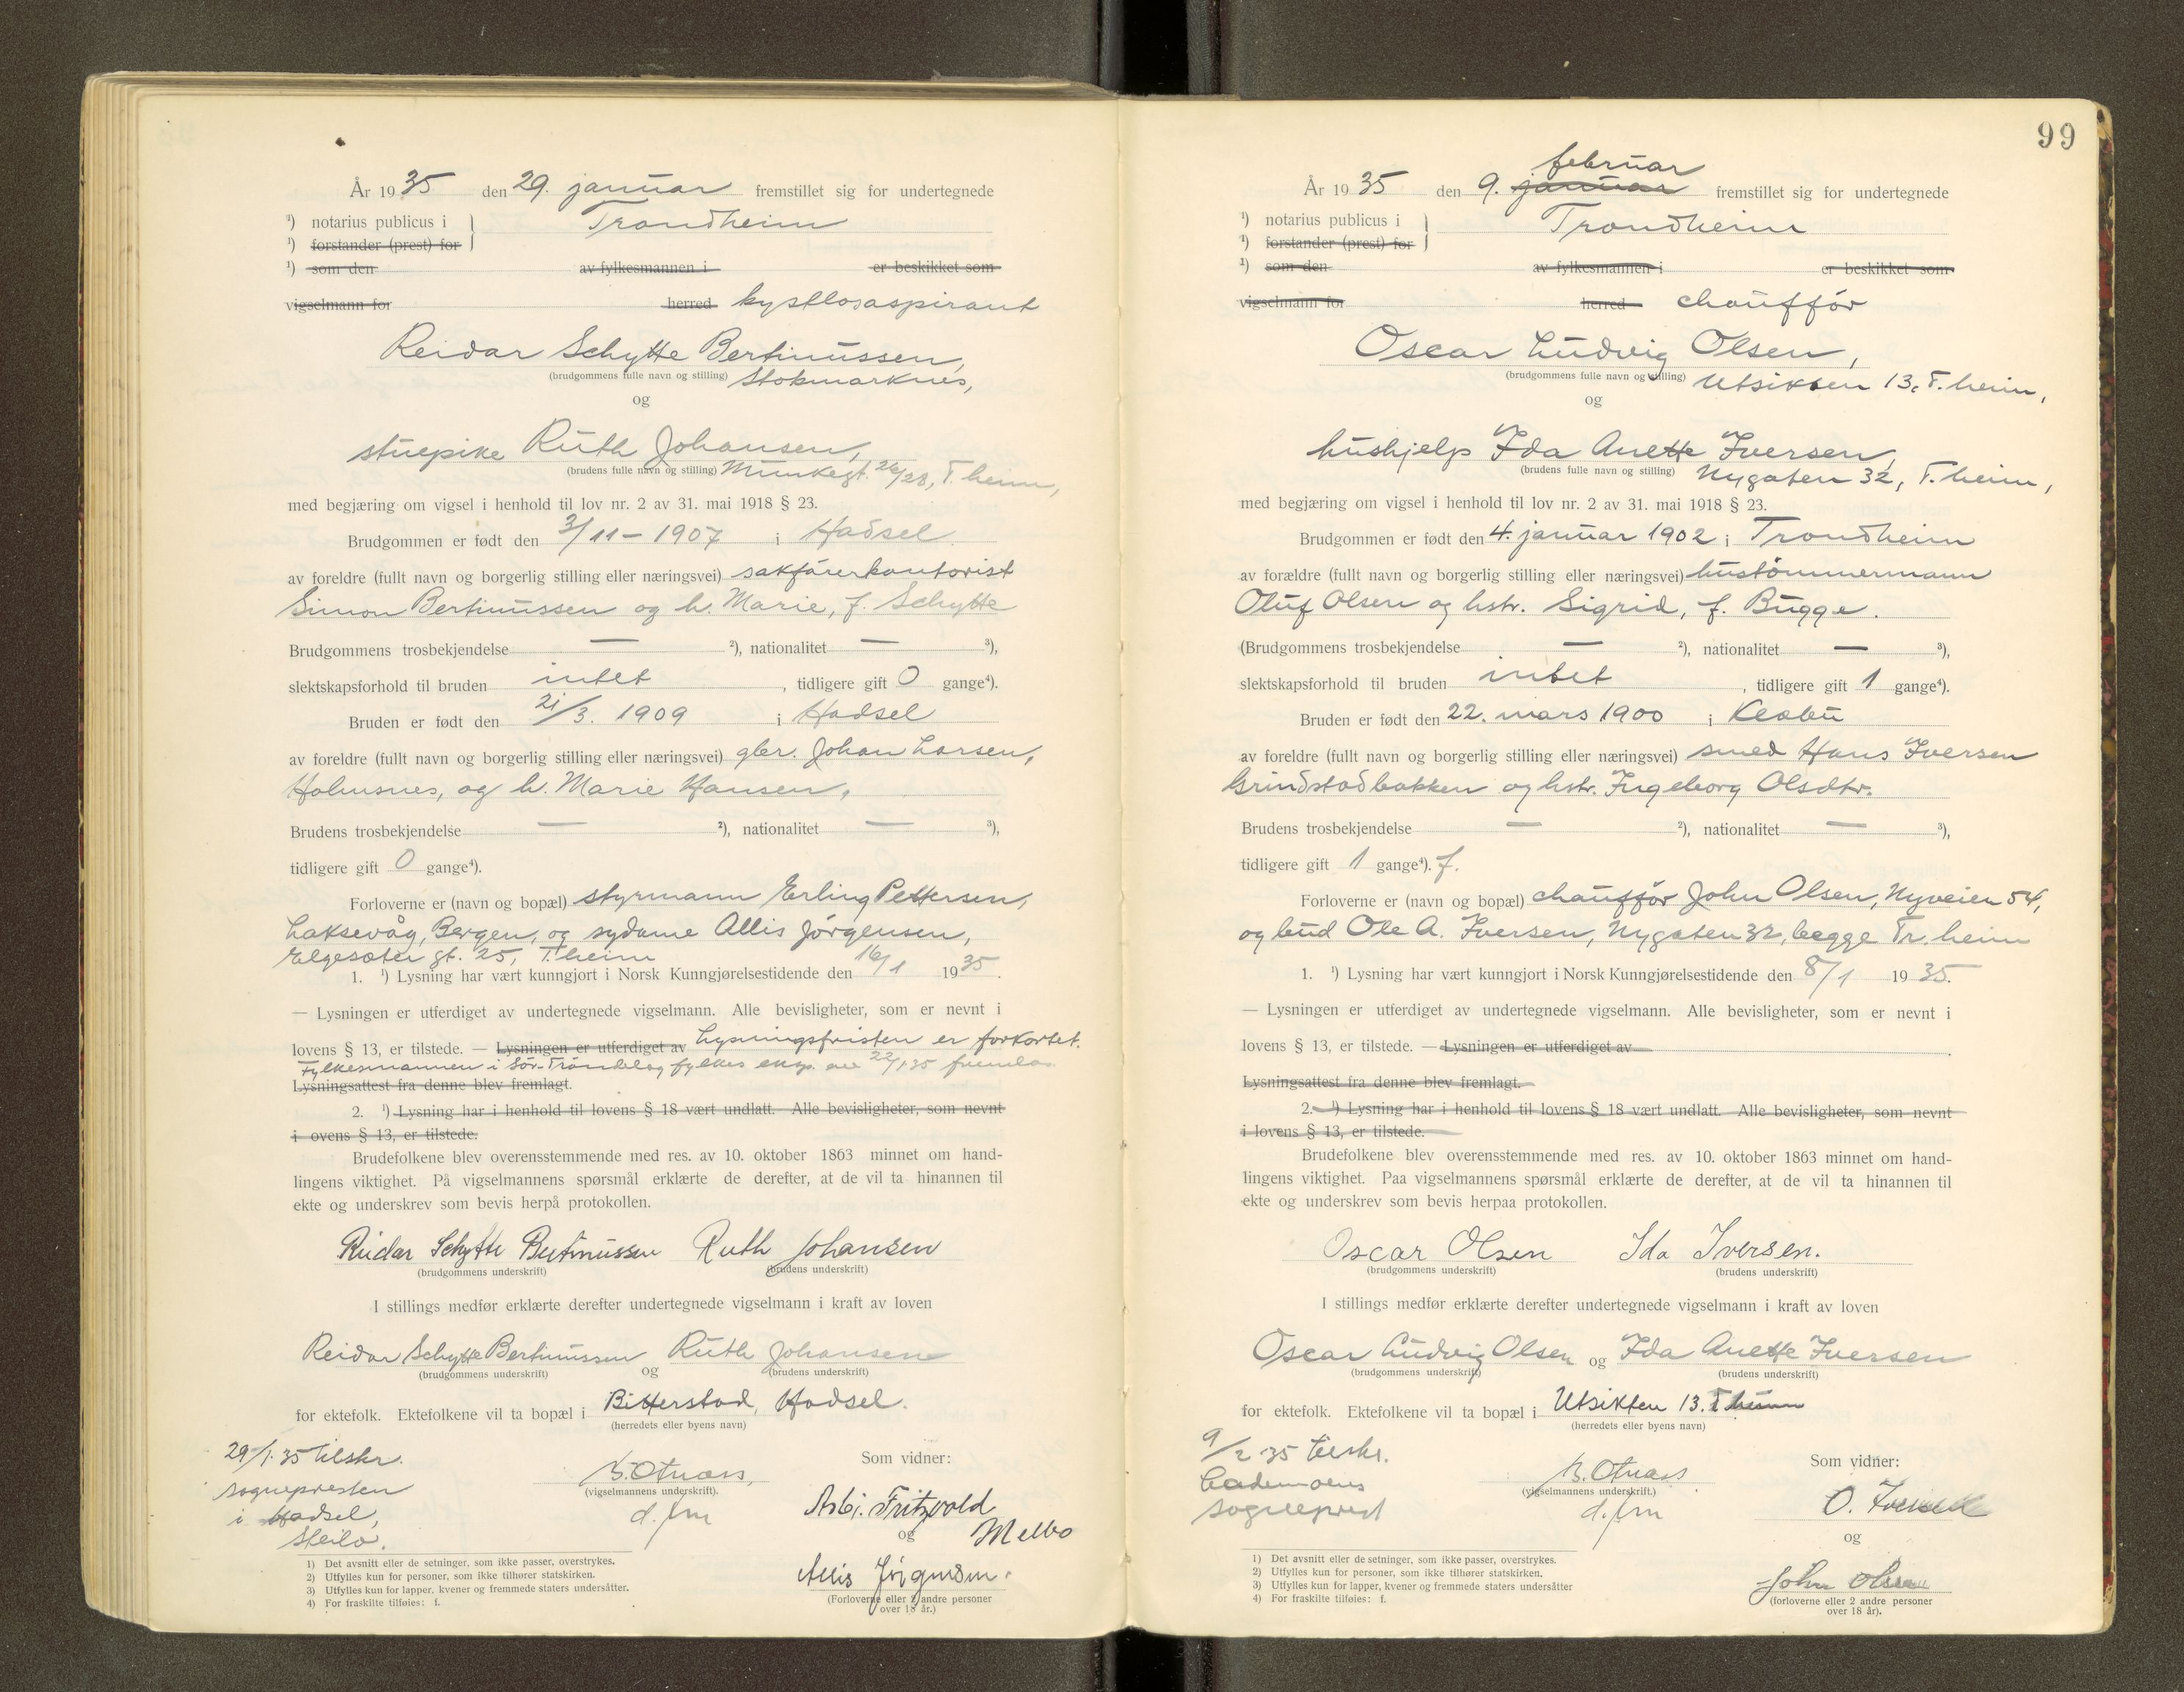 År 1935 den 29. januar fremstillet sig for undertegnede
¹) notarius publicus i } Trondheim
¹) forstander (prest) for
¹) som den av fylkesmannen i er beskikket som
vigselmann for herred kystlosaspirant
Reidar Schytte Bertinussen,
(brudgommens fulle navn og stilling) Stokmarknes,
og
stuepike Ruth Johansen,
(brudens fulle navn og stilling) Munkegt. 26/28, T.heim,
med begjæring om vigsel i henhold til lov nr. 2 av 31. mai 1918 § 23.
Brudgommen er født den 3/11 - 1907 i Hadsel
av foreldre (fullt navn og borgerlig stilling eller næringsvei) sakførerkontorist
Simon Bertinussen og h. Marie, f. Schytte
Brudgommens trosbekjendelse — ²), nationalitet — ³),
slektskapsforhold til bruden intet, tidligere gift 0 gange⁴).
Bruden er født den 21/3. 1909 i Hadsel
av foreldre (fullt navn og borgerlig stilling eller næringsvei) gbr. Johan Larsen,
Holmsnes, og h. Marie Hansen,
Brudens trosbekjendelse — ²), nationalitet — ³),
tidligere gift 0 gange⁴).
Forloverne er (navn og bopæl) styrmann Erling Pettersen,
Laksevåg, Bergen, og sydame Allis Jørgensen,
Elgesæter gt. 25, T.heim
1. ¹) Lysning har vært kunngjort i Norsk Kunngjørelsestidende den 16/1 1935.
— Lysningen er utferdiget av undertegnede vigselmann. Alle bevisligheter, som er nevnt i
lovens § 13, er tilstede. — Lysningen er utferdiget av Lysningsfristen er forkortet.
Fylkesmannen i Sør-Trøndelag fylkes eksp. av 22/1 35 fremlas
Lysningsattest fra denne blev fremlagt.
2. ¹) Lysning har i henhold til lovens § 18 vært undlatt. Alle bevisligheter, som nevnt
i ovens § 13, er tilstede.
Brudefolkene blev overensstemmende med res. av 10. oktober 1863 minnet om hand-
lingens viktighet. På vigselmannens spørsmål erklærte de derefter, at de vil ta hinannen til
ekte og underskrev som bevis herpå protokollen.
Reidar Schytte Bertinussen Ruth Johansen
(brudgommens underskrift) (brudens underskrift)
I stillings medfør erklærte derefter undertegnede vigselmann i kraft av loven
Reidar Schytte Bertinussen og Ruth Johansen
(brudgommens underskrift) (brudens underskrift)
for ektefolk. Ektefolkene vil ta bopæl i Bitterstad, Hadsel.
(herredets eller byens navn)
29/1.35 tilskr.
sognepresten
i Hadsel,
(vigselmannens underskrift).
d. fm
Som vidner:
Asbj. Fritzvold
og Melbo
Allis Jørgensen.
(Forloverne eller 2 andre personer
over 18 år.)
1) Det avsnitt eller de setninger, som ikke passer, overstrykes.
2) Utfylles kun for personer, som ikke tilhører statskirken.
3) Utfylles kun for lapper, kvener og fremmede staters undersåtter.
4) For fraskilte tilføies: f.
99
februar
År 1935 den 9. januar fremstillet sig for undertegnede
¹) notarius publicus i } Trondheim
¹) forstander (prest) for
¹) som den av fylkesmannen i er beskikket som
vigselmann for herred chauffør
Oscar Ludvig Olsen,
(brudgommens fulle navn og stilling) Utsikten 13, T.heim,
og
hushjelp Ida Anette Iversen,
(brudens fulle navn og stilling) Nygaten 32, T.heim,
med begjæring om vigsel i henhold til lov nr. 2 av 31. mai 1918 § 23.
Brudgommen er født den 4. januar 1902 i Trondheim
av forældre (fullt navn og borgerlig stilling eller næringsvei) hustømmermann
Oluf Olsen og hstr. Sigrid, f. Bugge.
(Brudgommens trosbekjendelse — ²), nationalitet — ³),
slektskapsforhold til bruden intet, tidligere gift 1 gange⁴).
Bruden er født den 22. mars 1900 i Klæbu
av foreldre (fullt navn og borgerlig stilling eller næringsvei) smed Hans Iversen
Grindstadbakken og hstr. Ingeborg Olsdtr.
Brudens trosbekjendelse — ²), nationalitet — ³),
tidligere gift 1 gange⁴). f.
Forloverne er (navn og bopæl) chauffør John Olsen, Nyveien 54,
og bud Ole A. Iversen, Nygaten 32, begge Tr.heim
1. ¹) Lysning har vært kunngjort i Norsk Kunngjørelsestidende den 8/1 1935.
— Lysningen er utferdiget av undertegnede vigselmann. Alle bevisligheter, som er nevnt i
lovens § 13, er tilstede. — Lysningen er utferdiget av
Lysningsattest fra denne blev fremlagt.
2. ¹) Lysning har i henhold til lovens § 18 vært undlatt. Alle bevisligheter, som nevnt
i lovens § 13, er tilstede.
Brudefolkene blev overensstemmende med res. av 10. oktober 1863 minnet om hand-
lingens viktighet. Paa vigselmannens spørsmål erklærte de derefter, at de vil ta hinannen til
ekte og underskrev som bevis herpaa protokollen.
Oscar Olsen Ida Iversen.
(brudgommens underskrift) (brudens underskrift)
I stillings medfør erklærte derefter undertegnede vigselmann i kraft av loven
Oscar Ludvig Olsen og Ida Anette Iversen
(brudgommens underskrift) (brudens underskrift)
for ektefolk. Ektefolkene vil ta bopæl i Utsikten 13. T.heim
(herredets eller byens navn)
9/2 35 tilskr.
Lademoens
sogneprest
(vigselmannens underskrift.)
d. fm
Som vidner:
O. Iversen
og
John Olsen
(forloverne eller 2 andre personer
over 18 år).
1) Det avsnitt eller de setninger, som ikke passer, overstrykes.
2) Utfylles kun for personer, som ikke tilhører statskirken.
3) Utfylles kun for lapper, kvener og fremmede staters undersåtter
4) For fraskilte tilføies: f.